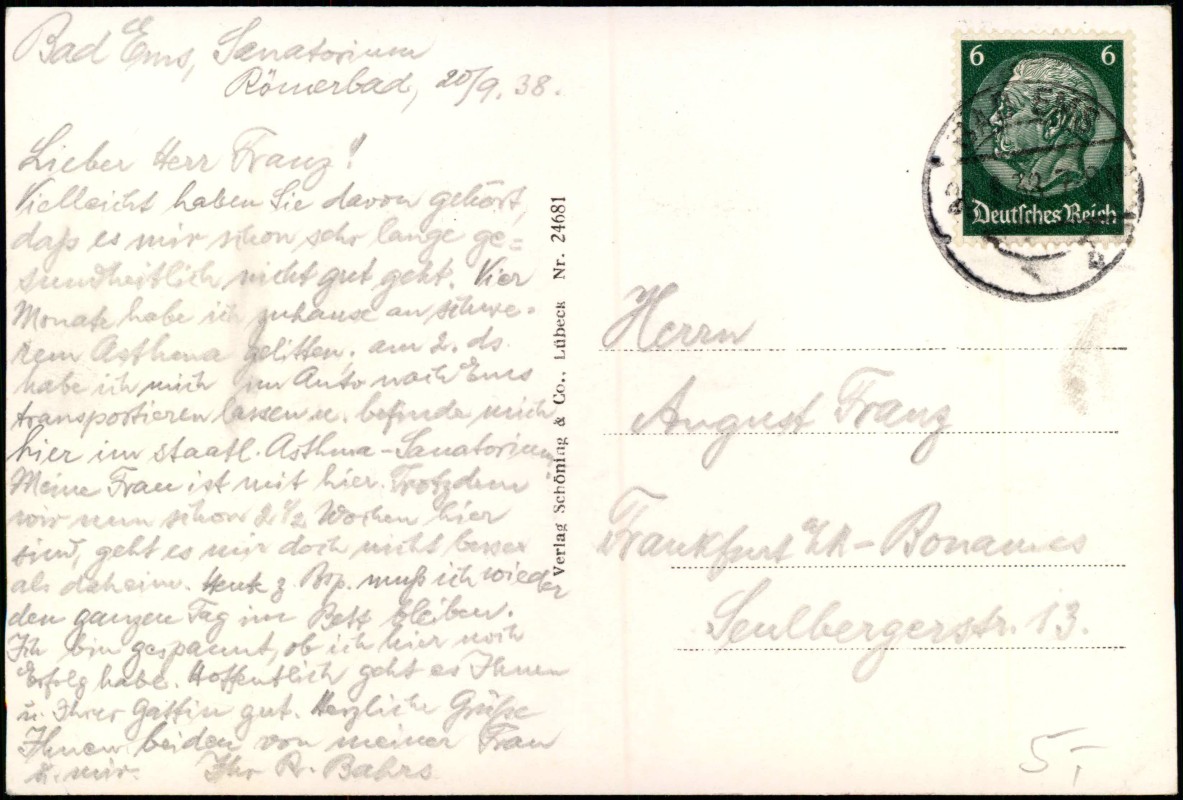 Bad Ems, Sanatorium
Römerbad, 20/9. 38.
Lieber Herr Franz!
Vielleicht haben Sie davon gehört,
daß es mir schon sehr lange ge=
sundheitlich nicht gut geht. Vier
Monate habe ich zuhause an schwe-
rem Asthma gelitten. am 2. ds.
habe ich mich im Auto nach Ems
transportieren lassen u. befinde mich
hier im staatl. Asthma-Sanatorium.
Meine Frau ist mit hier. Trotzdem
wir nun schon 2½ Wochen hier
sind, geht es mir doch nicht besser
als daheim. Heute z. Bsp. muß ich wieder
den ganzen Tag im Bett bleiben.
Ich bin gespannt, ob ich hier noch
Erfolg habe. Hoffentlich geht es Ihnen
u. Ihrer Gattin gut. Herzliche Grüße
Ihnen beiden von meiner Frau
u. mir. Ihr R. Bahrs
Verlag Schöning & Co., Lübeck Nr. 24681
6 6
Deutsches Reich
BAD EMS
Herrn
August Franz
Frankfurt - Bonames
Seulbergerstr. 13.
5,-